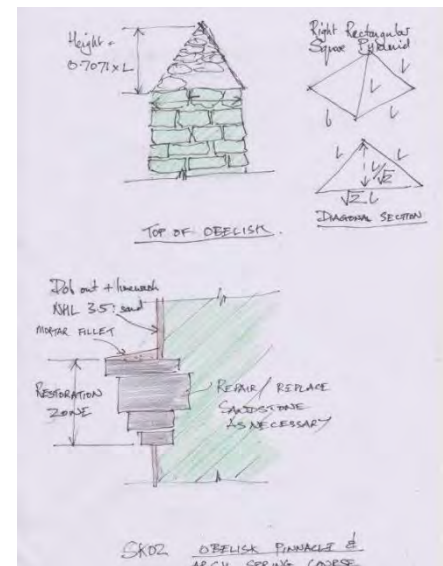 Height =
0.7071 x L
Right Rectangular
Square Pyramid
L
L
L
L
L
L
L/√2
√2 L
DIAGONAL SECTION
TOP OF OBELISK.
Dob out + limewash
NHL 3.5: sand
MORTAR FILLET
RESTORATION
ZONE
REPAIR / REPLACE
SANDSTONE
AS NECESSARY
SK02 OBELISK PINNACLE &
ARCH SPRING COURSE